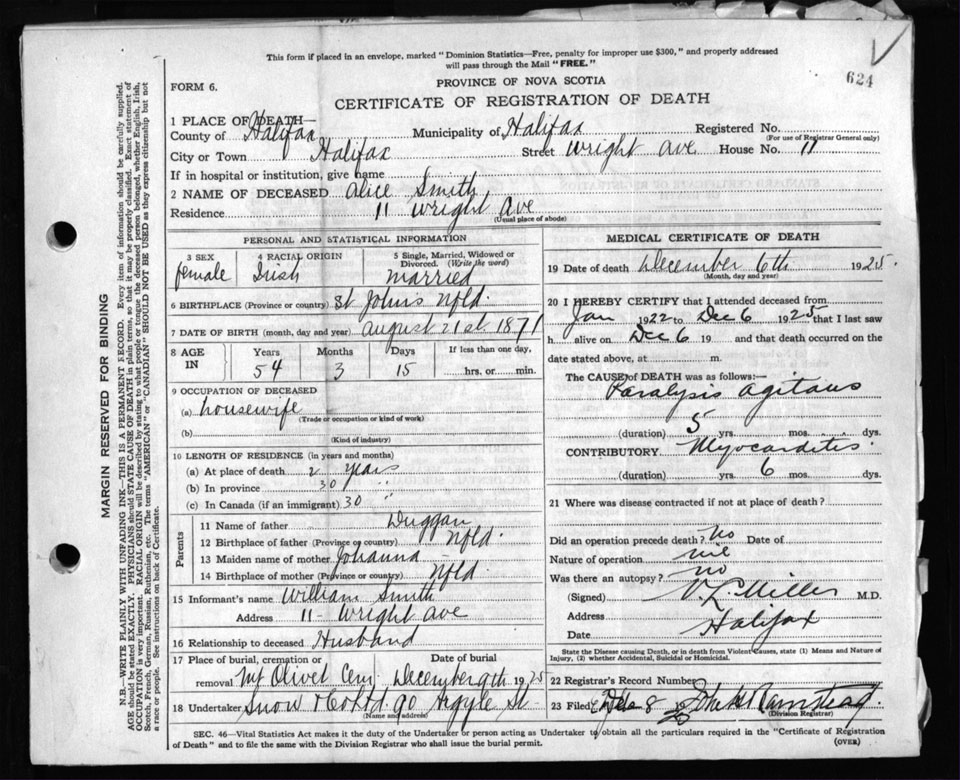 This form if placed in an envelope, marked "Dominion Statistics—Free, penalty for improper use $300," and properly addressed
will pass through the Mail "FREE."
624
FORM 6.
PROVINCE OF NOVA SCOTIA
CERTIFICATE OF REGISTRATION OF DEATH
1 PLACE OF DEATH—
County of Halifax Municipality of Halifax Registered No.
(For use of Registrar General only)
City or Town Halifax Street Wright Ave House No. 11
If in hospital or institution, give name
2 NAME OF DECEASED Alice Smith
Residence 11 Wright Ave
(Usual place of abode)
PERSONAL AND STATISTICAL INFORMATION
3 SEX 4 RACIAL ORIGIN 5 Single, Married, Widowed or
Divorced. (Write the word)
female Irish married
6 BIRTHPLACE (Province or country) St Johns Nfld.
7 DATE OF BIRTH (month, day and year) august 21st 1871
8 AGE IN Years Months Days If less than one day,
54 3 15 hrs. or min.
9 OCCUPATION OF DECEASED
(a) housewife
(Trade or occupation or kind of work)
(b)
(Kind of industry)
10 LENGTH OF RESIDENCE (in years and months)
(a) At place of death 2 years
(b) In province 30 "
(c) In Canada (if an immigrant) 30 "
Parents
11 Name of father Duggan
12 Birthplace of father (Province or country) Nfld.
13 Maiden name of mother Johanna -
14 Birthplace of mother (Province or country) Nfld
15 Informant's name William Smith
Address 11 - Wright ave
16 Relationship to deceased Husband
17 Place of burial, cremation or Date of burial
removal Mt Olivet Cem December 9th 1925
18 Undertaker Snow & Co Ltd 90 Argyle St
(Name and address)
MEDICAL CERTIFICATE OF DEATH
19 Date of death December 6th 1925.
(Month, day and year)
20 I HEREBY CERTIFY that I attended deceased from
Jan 1922 to Dec 6 1925 that I last saw
h alive on Dec 6 19 and that death occurred on the
date stated above, at m.
The CAUSE of DEATH was as follows:—
Paralysis Agitans
(duration) 5 yrs. mos. dys.
CONTRIBUTORY Myocarditis
(duration) 6 yrs. mos. dys.
21 Where was disease contracted if not at place of death?
Did an operation precede death? No Date of
Nature of operation nil
Was there an autopsy? no
(Signed) V. L. Miller M.D.
Address Halifax
Date
State the Disease causing Death, or in death from Violent Causes, state (1) Means and Nature of
Injury, (2) whether Accidental, Suicidal or Homicidal.
22 Registrar's Record Number
23 Filed Dec 8
(Division Registrar)
SEC. 46—Vital Statistics Act makes it the duty of the Undertaker or person acting as Undertaker to obtain all the particulars required in the "Certificate of Registration
of Death" and to file the same with the Division Registrar who shall issue the burial permit. (OVER)
MARGIN RESERVED FOR BINDING
N.B.—WRITE PLAINLY WITH UNFADING INK—THIS IS A PERMANENT RECORD. Every item of information should be carefully supplied.
AGE should be stated EXACTLY. PHYSICIANS should STATE CAUSE OF DEATH in plain terms, so that it may be properly classified. Exact statement of
OCCUPATION is very important. RACIAL ORIGIN will be described by stating to what people or tongue the deceased person belonged, whether English, Irish,
Scotch, French, German, Russian, Ruthenian, etc. The terms "AMERICAN" or "CANADIAN" SHOULD NOT BE USED as they express citizenship but not
a race or people. See instructions on back of Certificate.